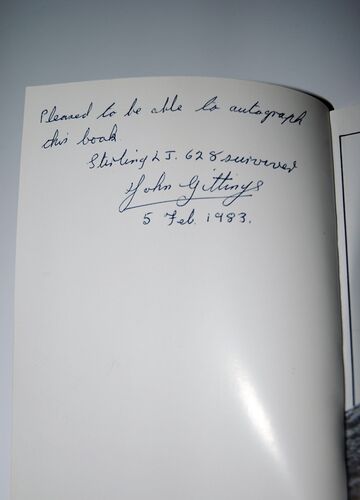 Pleased to be able to autograph
this book
Stirling LJ. 628 survivor
John Gittings
5 Feb. 1983.